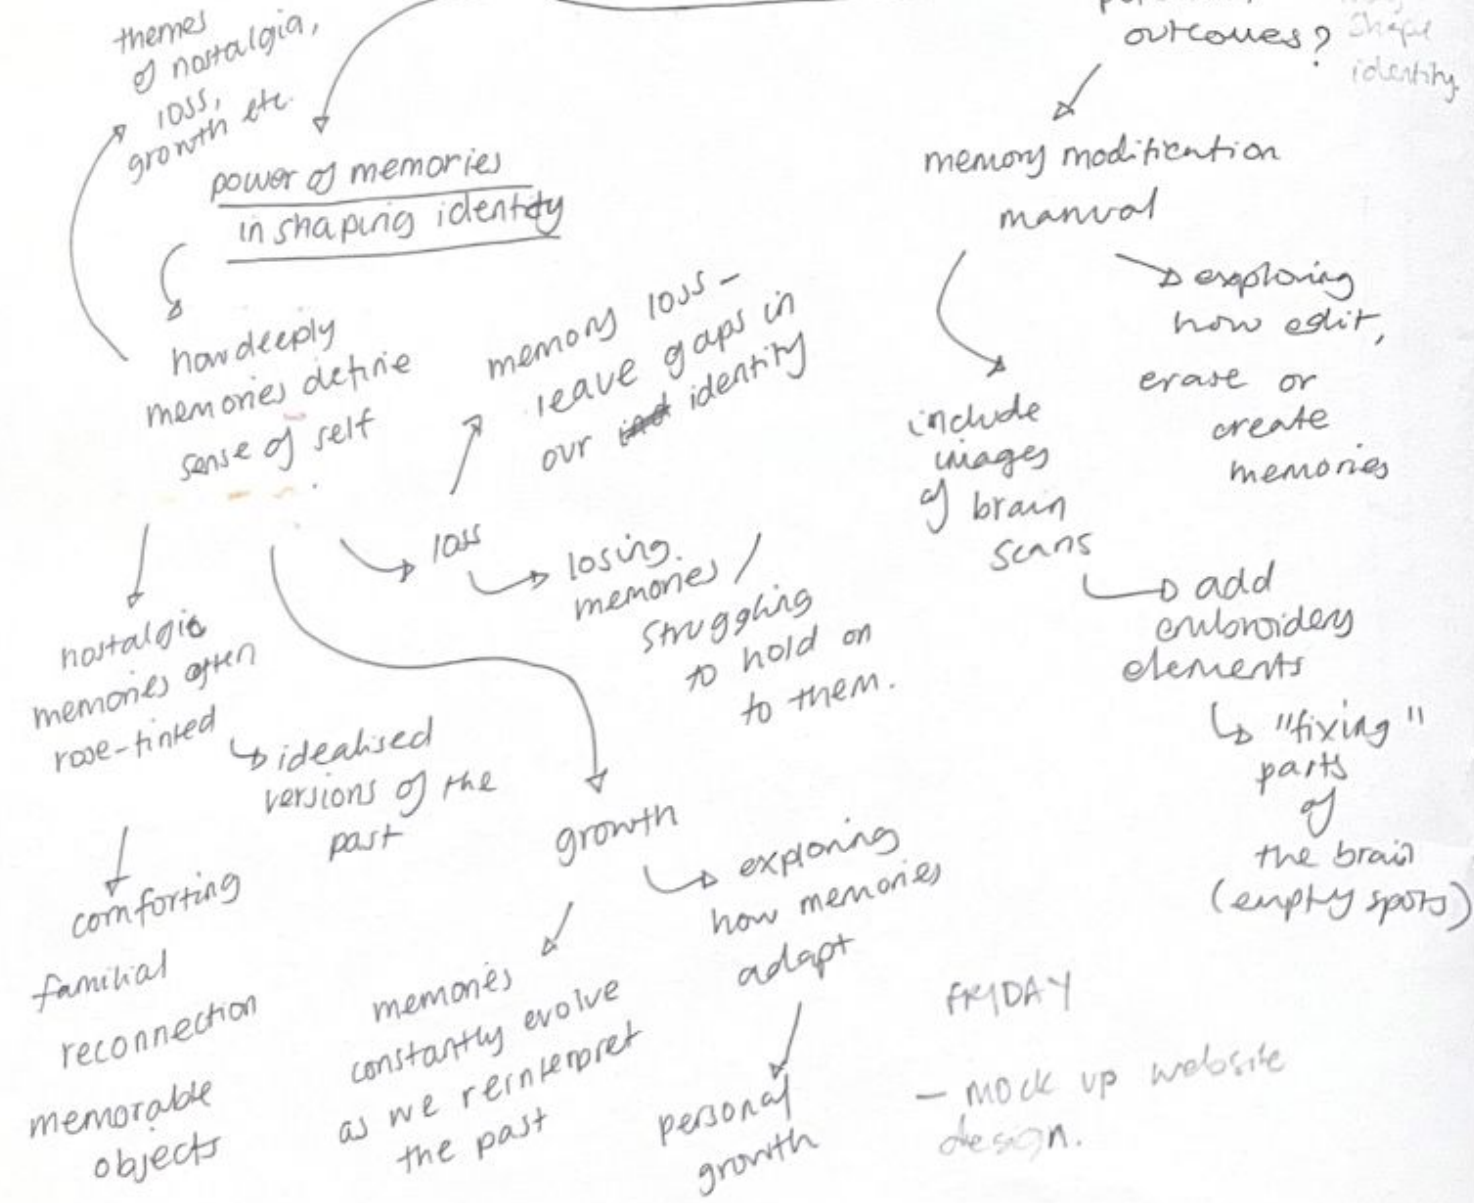 themes
of nostalgia,
loss,
growth etc.
power of memories
in shaping identity
how deeply
memories define
sense of self
memory loss -
leave gaps in
our identity
loss
losing
memories /
struggling
to hold on
to them.
nostalgic
memories often
rose-tinted
idealised
versions of the
past
comforting
familial
reconnection
memorable
objects
growth
exploring
how memories
adapt
personal
growth
memories
constantly evolve
as we reinterpret
the past
outcomes?
shape
identity
memory modification
manual
exploring
how edit,
erase or
create
memories
include
images
of brain
scans
add
embroidery
elements
"fixing"
parts
of
the brain
(empty spots)
FRIDAY
- mock up website
design.